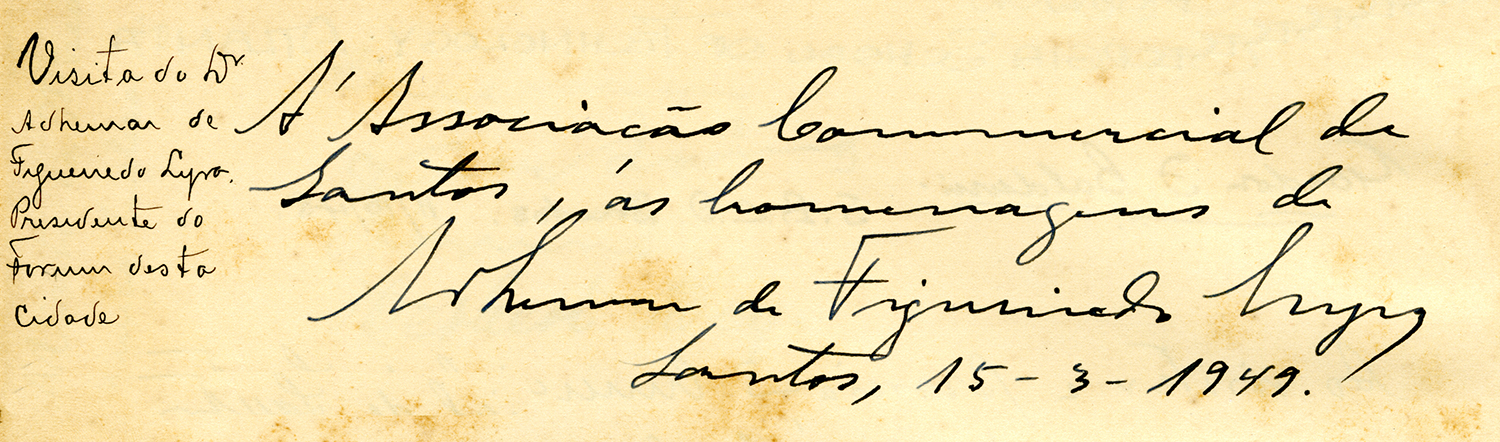 Visita do Dr.
Adhemar de
Figueiredo Lyra.
Presidente do
Forum desta
cidade
A' Associação Commercial de
Santos, ás homenagens de
Adhemar de Figueiredo Lyra
Santos, 15-3-1949.